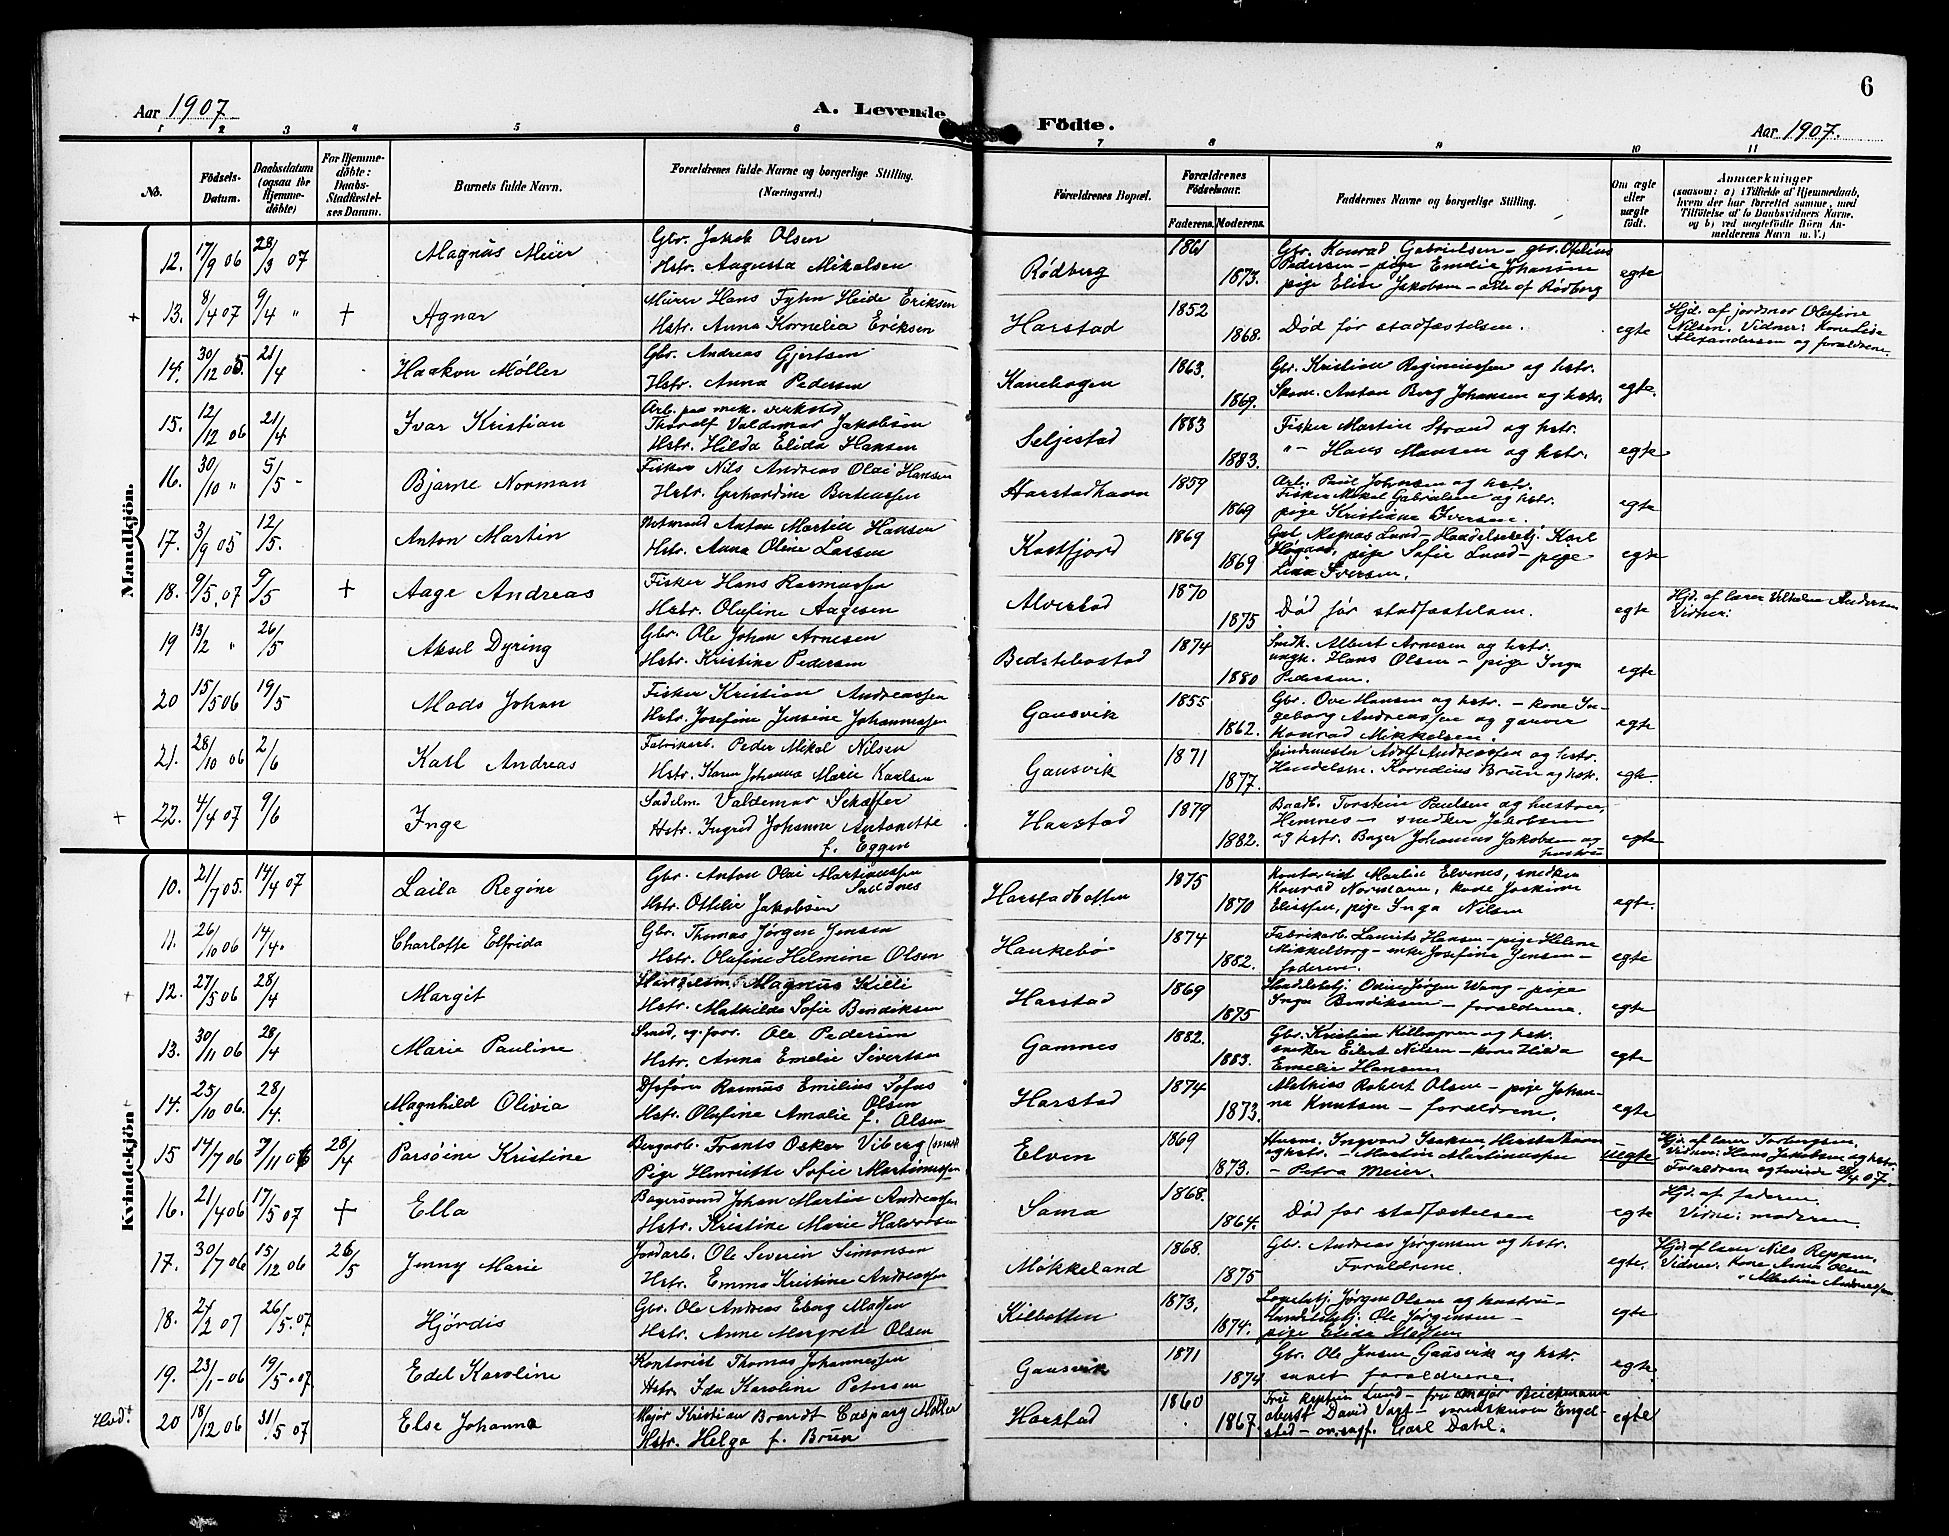 6
Aar 1907.
A. Levende Födte.
Aar 1907.
1 2 3 4 5 6 7 8 9 10 11
No.
Födsels-Datum.
Daabsdatum (ogsaa for Hjemmedöbte)
For Hjemmedöbte: Daabs-Stadfæstelses Datum.
Barnets fulde Navn.
Forældrenes fulde Navne og borgerlige Stilling.
(Næringsvei.)
Forældrenes Bopæl.
Forældrenes Födselsaar.
Faderens. Moderens.
Faddernes Navne og borgerlige Stilling.
Om ægte eller uægte födt.
Anmærkninger
(saasom: a) i Tilfælde af Hjemmedaab,
hvem der har forrettet samme, med
Tilföielse af to Daabsvidners Navne.
og b) ved uægtefödte Börn Anmelderens Navn m. V.)
Mandkjön.
12. 17/9 06 28/3 07 Magnus Meier Gbr. Jakob Olsen
Hstr. Augusta Mikalsen Rødberg 1861 1873. Gbr. Konrad Gabrielsen - gbr. Ofelius
Pedersen - pige Emelie Johansen
pige Elise Jakobsen - alle af Rødberg egte
+ 13. 8/4 07 9/4 " + Agnar Murer Hans Fyhn Heide Eriksen
Hstr. Anna Kornelia Eriksen Harstad 1852 1868. Død før stadfæstelsen. egte Hjd. af jordmor Olufine
Nilsen. Vidner: Kone Lise
Alexandersen og forældrene.
14. 30/12 05. 21/4 Haakon Møller Gbr. Andreas Gjertsen
Hstr. Anna Pedersen Kanebogen 1863. 1869. Gbr. Kristian Reginiussen og hstr.
Skom. Anton Berg Johansen og hstr. egte.
15. 12/12 06 21/4 Ivar Kristian Arb. paa mek. verksted
Thoralf Valdemar Jakobsen
Hstr. Hilda Elida Hansen Seljestad 1883 1883. Fisker Martin Strand og hstr.
" - Hans Hansen og hstr. egte
16. 30/10 " 5/5 - Bjarne Norman Fisker Nils Andreas Olai Hansen
Hstr. Gerhardine Berteussen Harstadhavn 1859 1869 Arb. Paul Johnsen og hstr.
Fisker Mikal Gabrielsen og hstr.
pige Kristiane Iversen. egte
17. 3/9 05 12/5. Anton Martin Anton Martin Hansen
Hstr. Anna Oline Larsen Kastfjord 1869 1869 Magnus Lund - Handelsbetj. Karl
pige Sofie Lund - pige
Lina Iversen. egte
18. 9/5 07 9/5 + Aage Andreas Fisker Hans Rasmussen
Hstr. Olufine Aagesen Alvestad 1870 1875 Død før stadfæstelsen. egte Hjd. af lærer Vilhelm Andersen
Vidner:
19 13/2 " 26/5 Aksel Dyring Gbr. Ole Johan Arnesen
Hstr. Kristine Pedersen Bedstebostad 1874 1880 Smdk. Albert Arnesen og hstr.
ungk. Hans Olsen - pige Inga
Pedersen. egte
20 15/5 06 19/5 Mads Johan Fisker Kristian Andreassen
Hstr. Josefine Jensine Johannessen Gausvik 1855 1862. Gbr. Ove Hansen og hstr. - kone In-
geborg Andreassen og garver
Konrad Mikkelsen. egte
21. 28/10 06 2/6 Karl Andreas Fabrikarb. Peder Mikal Nilsen
Hstr. Karen Johanna Marie Karlsen Gausvik 1871 1877. Adolf Andreassen og hstr.
Handelsm. Kornelius Bruun og hstr. egte.
+ 22. 4/4 07 9/6 Inge Sadelm. Valdemar Schæffer
Hstr. Ingrid Johanne Antonette
f. Eggen Harstad 1879 1882. Baadb. Torstein Paulsen og hustru,
Hemnes - snedker Jakobsen
og hstr. Bager Johannes Jakobsen og
hustru egte
Kvindekjön
10. 21/7 05. 14/4 07 Laila Regine Gbr. Anton Olai Martinussen
Hstr. Ottilie Jakobsen Harstadbotten 1875 1870 Kontorist Martin Elvenes, snedker
Konrad Normann, kone Joakime
Eliassen, pige Inga Nilsen egte.
11. 26/10 06 14/4. Charlotte Elfrida Gbr. Thomas Jørgen Jensen
Hstr. Olufine Helmine Olsen Haukebø 1874 1882. Fabrikarb. Laurits Hansen - pige Helene
Mikkelborg - enke Josefine Jensen -
faderen. egte
+ 12. 27/5 06 28/4 Margit Magnus Killi
Hstr. Mathilde Sofie Bendiksen Harstad 1869 1875 Handelsbetj. Odin Jørgen Wang - pige
Inga Bendiksen - forældrene. egte
13. 30/11 06 28/4 Marie Pauline Smed, og forr. Ole Pedersen
Hstr. Anna Emelie Sivertsen Gamnes 1882. 1883. Gbr. Kristian Killingren og hstr.
snedker Eilert Nilsen - kone Hilda
Emelie Hansen egte
+ 14. 25/10 06. 28/4. Magnhild Olivia Rasmus Emilius Tofus
Olsen
Hstr. Olufine Amalie f. Olsen Harstad 1874 1873. Mathias Robert Olsen - pige Johan-
na Knutsen - forældrene. egte
15 14/7 06 9/11 06 28/4 Parsøine Kristine Bergarb. Frants Oskar Viberg
Pige Henriette Sofie Martinussen Elven 1869 1873. Husm. Ingvard Isaksen Harstadhavn
og hstr. - Martin Martinussen
- Petra Meier. uegte Hjd. af lærer Torbergsen.
Vidner: Hans Jakobsen og hstr.
Forældrene egteviede 28/4 07.
16. 21/4 06 17/5 07 + Ella Bagersvend Johan Martin Andreassen
Hstr. Kristine Marie Halvorsen Sama 1868. 1864. Død før stadfæstelsen egte Hjd. af faderen.
Vidne: moderen.
17. 30/7 06 15/12 06 26/5 Jenny Marie Jordarb. Ole Severin Simonsen
Hstr. Emma Kristine Andreassen Møkkeland 1868. 1875 Gbr. Andreas Jørgensen og hstr.
Forældrene. egte. Hjd. af lærer Nils Reppen.
Vidner: Kone Anna Olsen
" Albertine Andreassen
18. 2/2 07 26/5. 07. Hjørdis Gbr. Ole Andreas Eberg Madsen
Hstr. Anne Margrete Olsen Kilbotten 1873. 1874. Jørgen Olsen og hustru -
Handelsbetj. Ole Jørgensen -
pige Elida Madsen egte
19. 23/1 - 06 19/5. 07 Edel Karoline Kontorist Thomas Johannessen
Hstr. Ida Karoline Petersen Gausvik 1871 1874 Gbr. Ole Jensen Gausvik og hstr.
samt forældrene. egte.
Hvd. + 20 18/12 06 31/5 07 Else Johanna Major Kristian Brandt Casparg Møller
Hstr. Helga f. Brun Harstad 1860 1867. Fru kaptein Lund - fru major Beichmann
oberst David Vart - Engel-
stad - Carl Dahl. egte